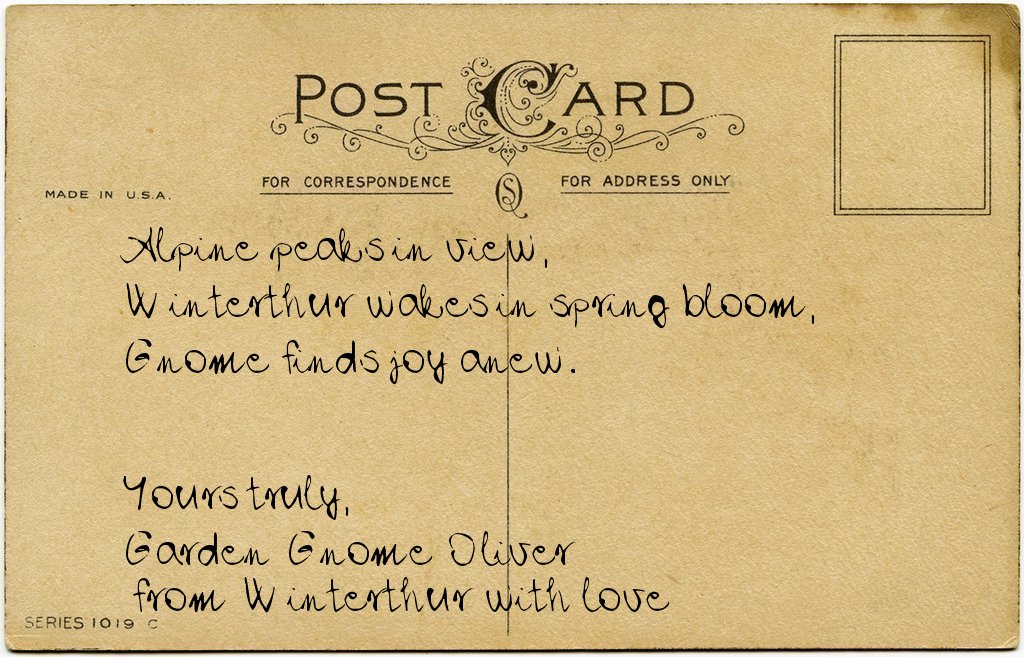 POST CARD
FOR CORRESPONDENCE
FOR ADDRESS ONLY
MADE IN U.S.A.
Alpine peaks in view,
Winterthur wakes in spring bloom,
Gnome finds joy anew.
Yours truly,
Garden Gnome Oliver
from Winterthur with love
SERIES 1019 C